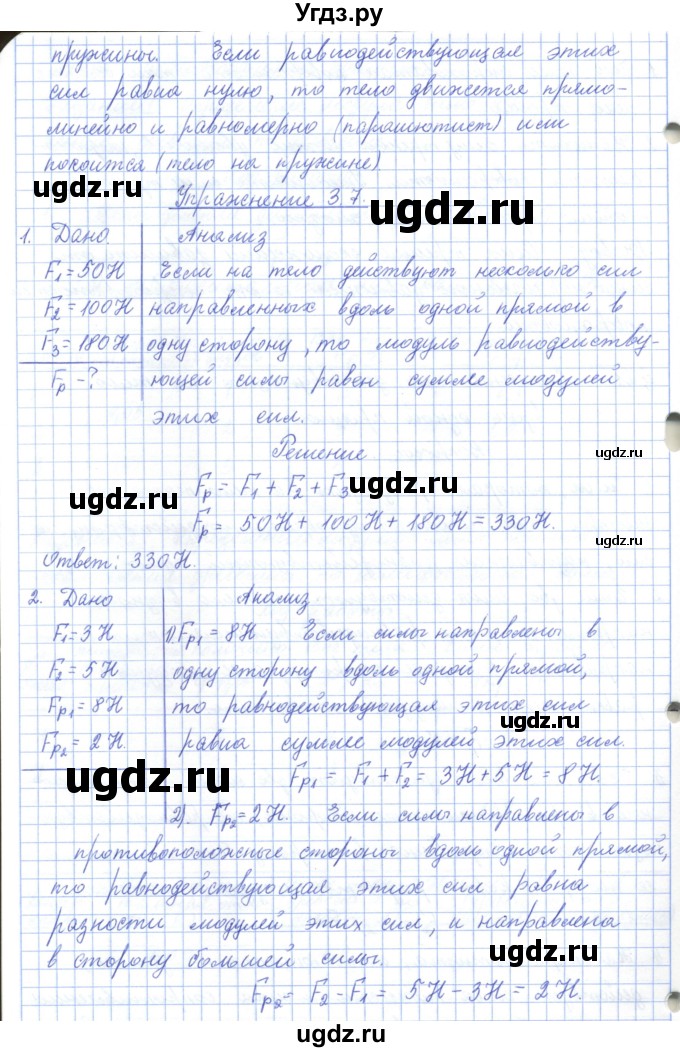 Угдз.ру
пружины. Если равнодействующая этих
сил равна нулю, то тело движется прямо-
линейно и равномерно (парашютист) или
покоится (тело на пружине)
ugdz.ru
Упражнение 37.
ugdz.ru
1. Дано Анализ
ugdz.ru
F₁ = 50 Н Если на тело действуют несколько сил
F₂ = 100 Н направленных вдоль одной прямой в
F₃ = 180 Н одну сторону, то модуль равнодейству-
Fр - ? ющей силы равен сумме модулей
этих сил.
Решение
ugdz.ru
Fр = F₁ + F₂ + F₃
ugdz.ru
Fр = 50 Н + 100 Н + 180 Н = 330 Н.
ugdz.ru
Ответ: 330 Н.
2. Дано Анализ
F₁ = 3 Н 1). Fр₁ = 8 Н Если силы направлены в
F₂ = 5 Н одну сторону вдоль одной прямой,
Fр₁ = 8 Н то равнодействующая этих сил
ugdz.ru
Fр₂ = 2 Н. равна сумме модулей этих сил.
ugdz.ru
Fр₁ = F₁ + F₂ = 3 Н + 5 Н = 8 Н.
2). Fр₂ = 2 Н. Если силы направлены в
ugdz.ru
противоположные стороны вдоль одной прямой,
то равнодействующая этих сил равна
разности модулей этих сил, и направлена
ugdz.ru
в сторону большей силы.
ugdz.ru
Fр₂ = F₂ - F₁ = 5 Н - 3 Н = 2 Н.
ugdz.ru